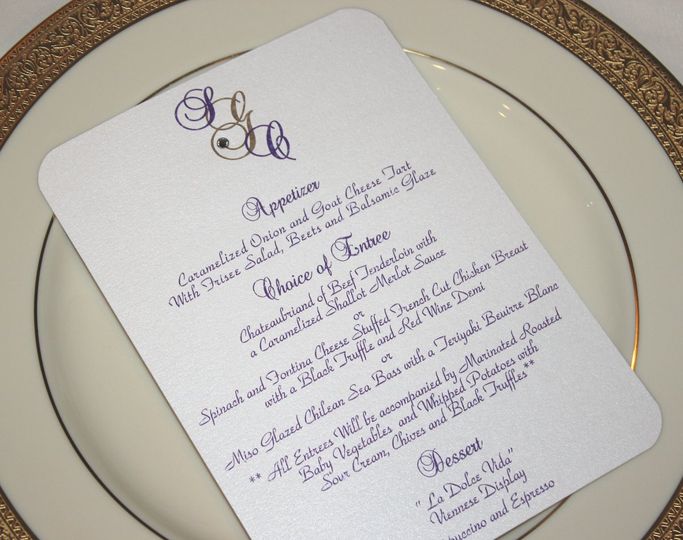 S G J Q
Appetizer
Caramelized Onion and Goat Cheese Tart
With Frisee Salad, Beets and Balsamic Glaze
Choice of Entree
Chateaubriand of Beef Tenderloin with
a Caramelized Shallot Merlot Sauce
or
Spinach and Fontina Cheese Stuffed French Cut Chicken Breast
with a Black Truffle and Red Wine Demi
or
Miso Glazed Chilean Sea Bass with a Teriyaki Beurre Blanc
** All Entrees Will be accompanied by Marinated Roasted
Baby Vegetables and Whipped Potatoes with
Sour Cream, Chives and Black Truffles**
Dessert
" La Dolce Vida"
Viennese Display
and Espresso